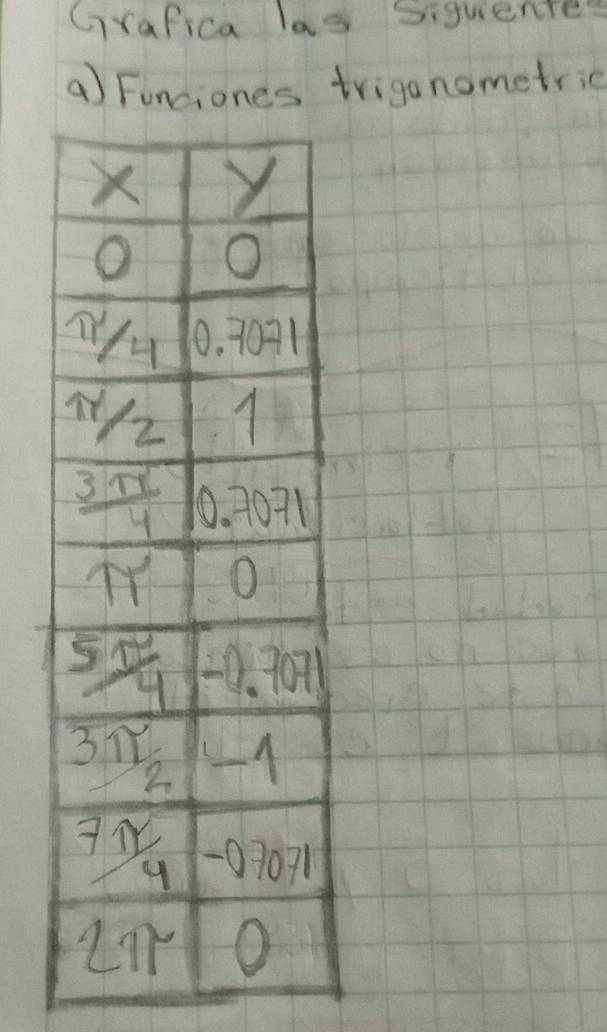 Grafica las Siguientes
a) Funciones trigonometric
x y
0 0
π/4 0.7071
π/2 1
3π/4 0.7071
π 0
5π/4 -0.7071
3π/2 -1
7π/4 -07071
2π 0